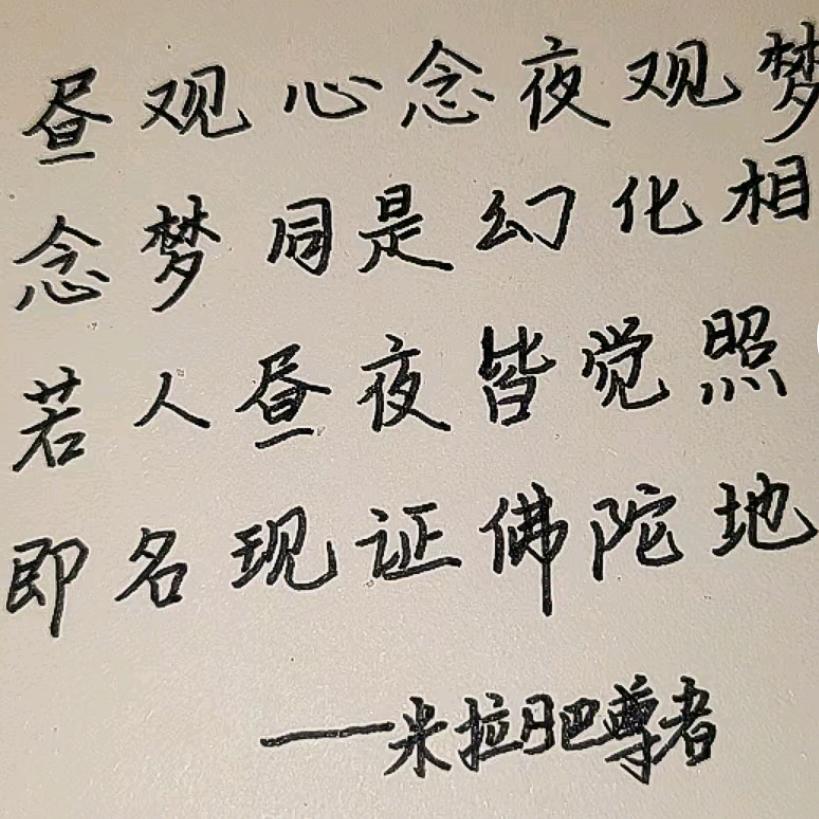 昼观心念夜观梦
念梦同是幻化相
若人昼夜皆觉照
即名现证佛陀地
——米拉肥尊者